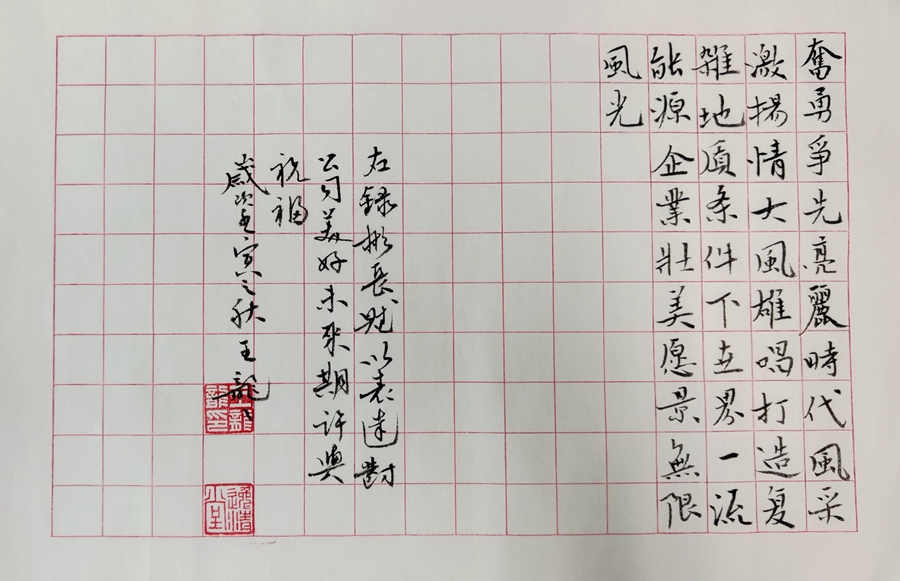 奮勇爭先亮麗時代風采
激揚情大風雄唱打造复
雜地质条件下世界一流
能源企業壯美愿景無限
風光
右録彬長賦以表達對
公司美好未來期许與
祝福
歲次壬寅之秋王龍
王龍
龍印